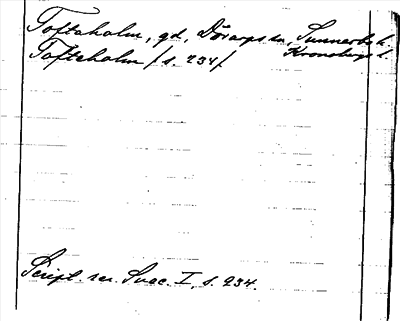 Toftaholm, gd, Dörarps sn, Sunnerbo h.
Kronobergs l.
Tofteholm /s. 234/
Script. rer. Svec. I, s. 234.